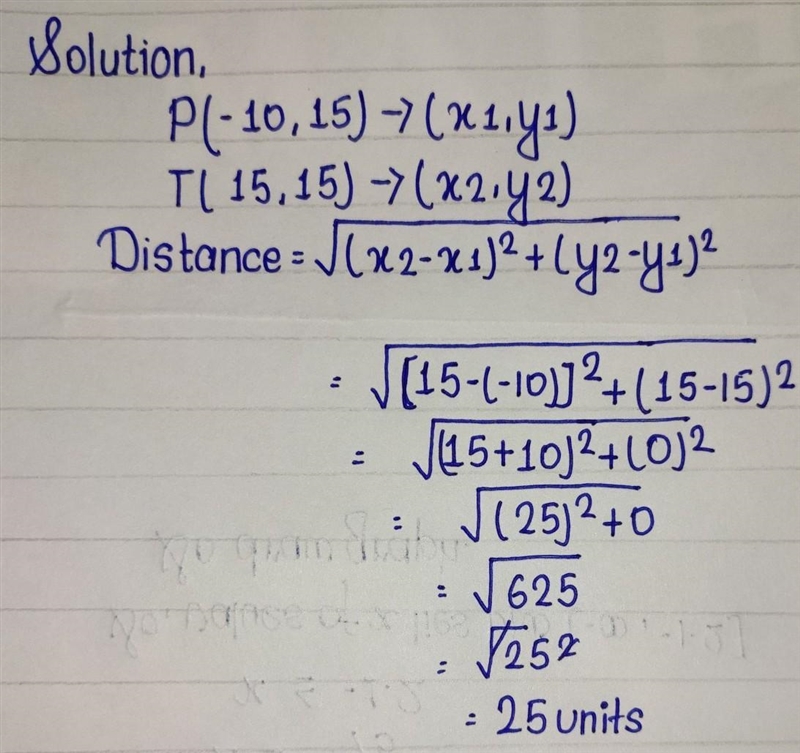 Solution,
P(-10,15)→(x1,y1)
T(15,15)→(x2,y2)
Distance=√(x2-x1)²+(y2-y1)²
= √[15-(-10)]²+(15-15)²
= √(15+10)²+(0)²
= √(25)²+0
= √625
= √25²
= 25 units